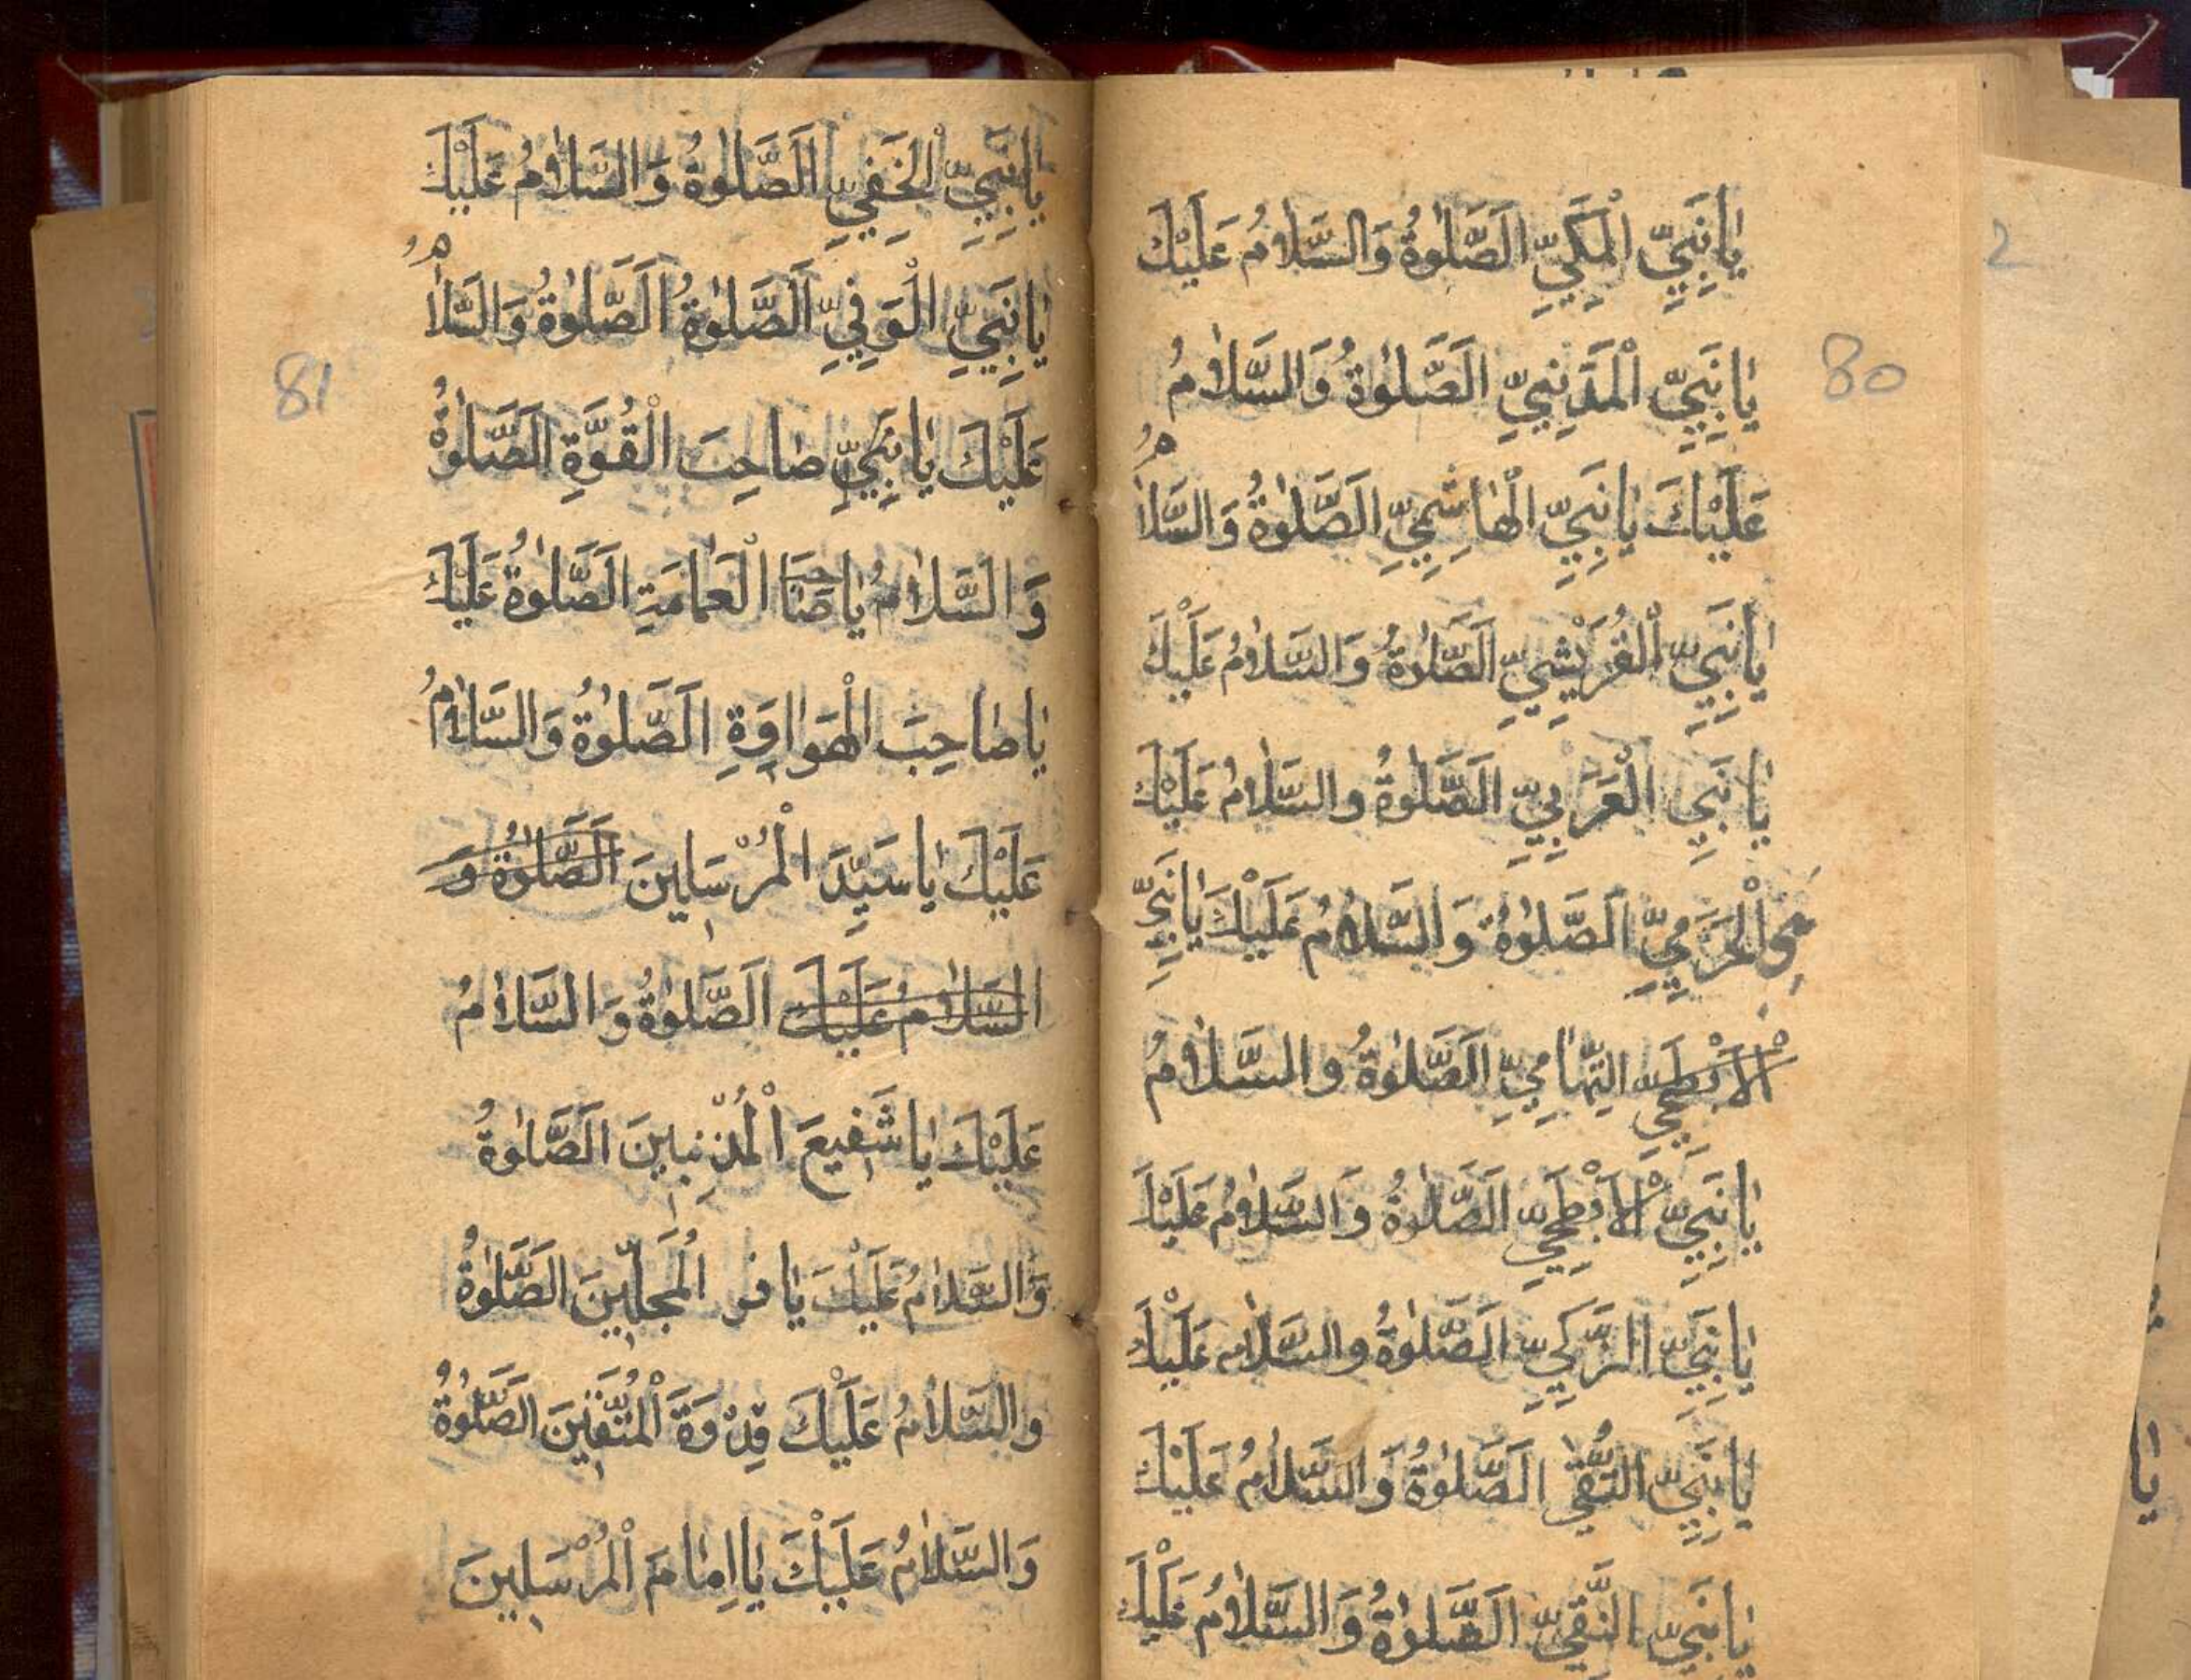 يَا نَبِيِّ الْمَكِّيِّ اَلصَّلٰوةُ وَالسَّلَامُ عَلَيْكَ
2
يَا نَبِيِّ الْمَدَنِيِّ اَلصَّلٰوةُ وَالسَّلَامُ
80
عَلَيْكَ يَا نَبِيِّ الْهَاشِمِيِّ اَلصَّلٰوةُ وَالسَّلَامُ
يَا نَبِيِّ الْقُرَيْشِيِّ اَلصَّلٰوةُ وَالسَّلَامُ عَلَيْكَ
يَا نَبِيِ الْعَرَبِيِّ اَلصَّلٰوةُ وَالسَّلَامُ عَلَيْكَ
الْحَرَمِيِّ اَلصَّلٰوةُ وَالسَّلَامُ عَلَيْكَ يَا نَبِيِّ
الْاَبْطَحِيِّ التِّهَامِيِّ اَلصَّلٰوةُ وَالسَّلَامُ
يَا نَبِيِّ الْاَبْطَحِيِّ اَلصَّلٰوةُ وَالسَّلَامُ عَلَيْكَ
يَا نَبِيِّ الزَّكِيِّ اَلصَّلٰوةُ وَالسَّلَامُ عَلَيْكَ
يَا نَبِيِّ التَّقِيِّ اَلصَّلٰوةُ وَالسَّلَامُ عَلَيْكَ
يَا نَبِيِّ النَّقِيِّ اَلصَّلٰوةُ وَالسَّلَامُ عَلَيْكَ
يَا نَبِيِّ الْخَفِيِّ اَلصَّلٰوةُ وَالسَّلَامُ عَلَيْكَ
يَا نَبِيِّ الْوَفِيِّ اَلصَّلٰوةُ اَلصَّلٰوةُ وَالسَّلَامُ
81
عَلَيْكَ يَا نَبِيِّ صَاحِبَ الْقُوَّةِ اَلصَّلٰوةُ
وَالسَّلَامُ يَا صَاحِبَ الْعَمَامَةِ اَلصَّلٰوةُ عَلَيْكَ
يَا صَاحِبَ الْهَوَاوَةِ اَلصَّلٰوةُ وَالسَّلَامُ
عَلَيْكَ يَا سَيِّدَ الْمُرْسَلِينَ اَلصَّلٰوةُ وَ
السَّلَامُ عَلَيْكَ اَلصَّلٰوةُ وَالسَّلَامُ
عَلَيْكَ يَا شَفِيعَ الْمُذْنِبِينَ اَلصَّلٰوةُ
وَالسَّلَامُ عَلَيْكَ يَا الْمُحَجَّلِينَ اَلصَّلٰوةُ
وَالسَّلَامُ عَلَيْكَ قِدْوَةَ الْمُتَّقِينَ اَلصَّلٰوةُ
وَالسَّلَامُ عَلَيْكَ يَا اِمَامَ الْمُرْسَلِينَ
يا